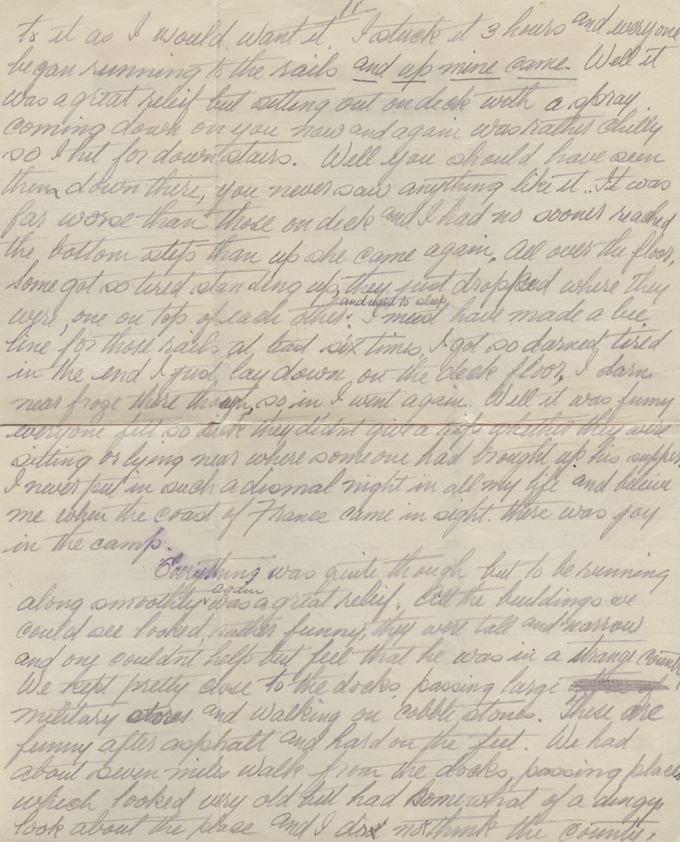 11
to it as I would want it. I stuck it 3 hours and everyone
began running to the rails and up mine came. Well it
was a great relief but sitting out on deck with a spray
coming down on you now and again was rather chilly
so I hit for downstairs. Well you should have seen
them down there, you never saw anything like it. It was
far worse than those on deck and I had no sooner reached
the bottom step than up she came again. All over the floor,
some got so tired standing up they just dropped where they
and went to sleep
were, one on top of each other. I must have made a bee
line for those rails at least six times, I got so darned tired
in the end I just lay down on the deck floor, I darn
near froze there though, so in I went again. Well it was funny
everyone felt so sick they didnt give a whether they were
sitting or lying near where someone had brought up his supper
I never put in such a dismal night in all my life and believe
me when the coast of France came in sight there was joy
in the camp.
Everything was quite though but to be running
again
along smoothly was a great relief. All the buildings we
could see looked rather funny, they were tall and narrow
and one couldnt help but feel that he was in a strange country
We kept pretty close to the docks passing large
military stores and walking on cobble stones. These are
funny after asphalt and hard on the feet. We had
about seven miles walk from the docks, passing places
which looked very old but had somewhat of a dingy
look about the place and I do not think the country,